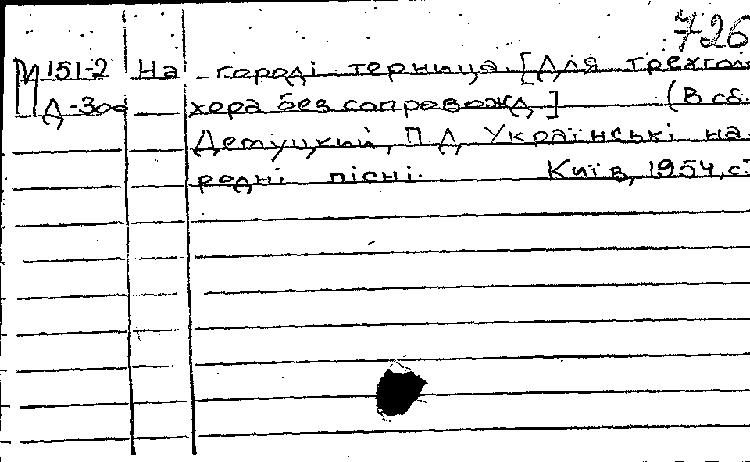 726
М 151-2 На городі терниця. [Для трехгол
Д-300 хора без сопровожд.] (В сб.
Демуцкий, П.Д. Українські на-
родні пісні. Київ, 1954, с.